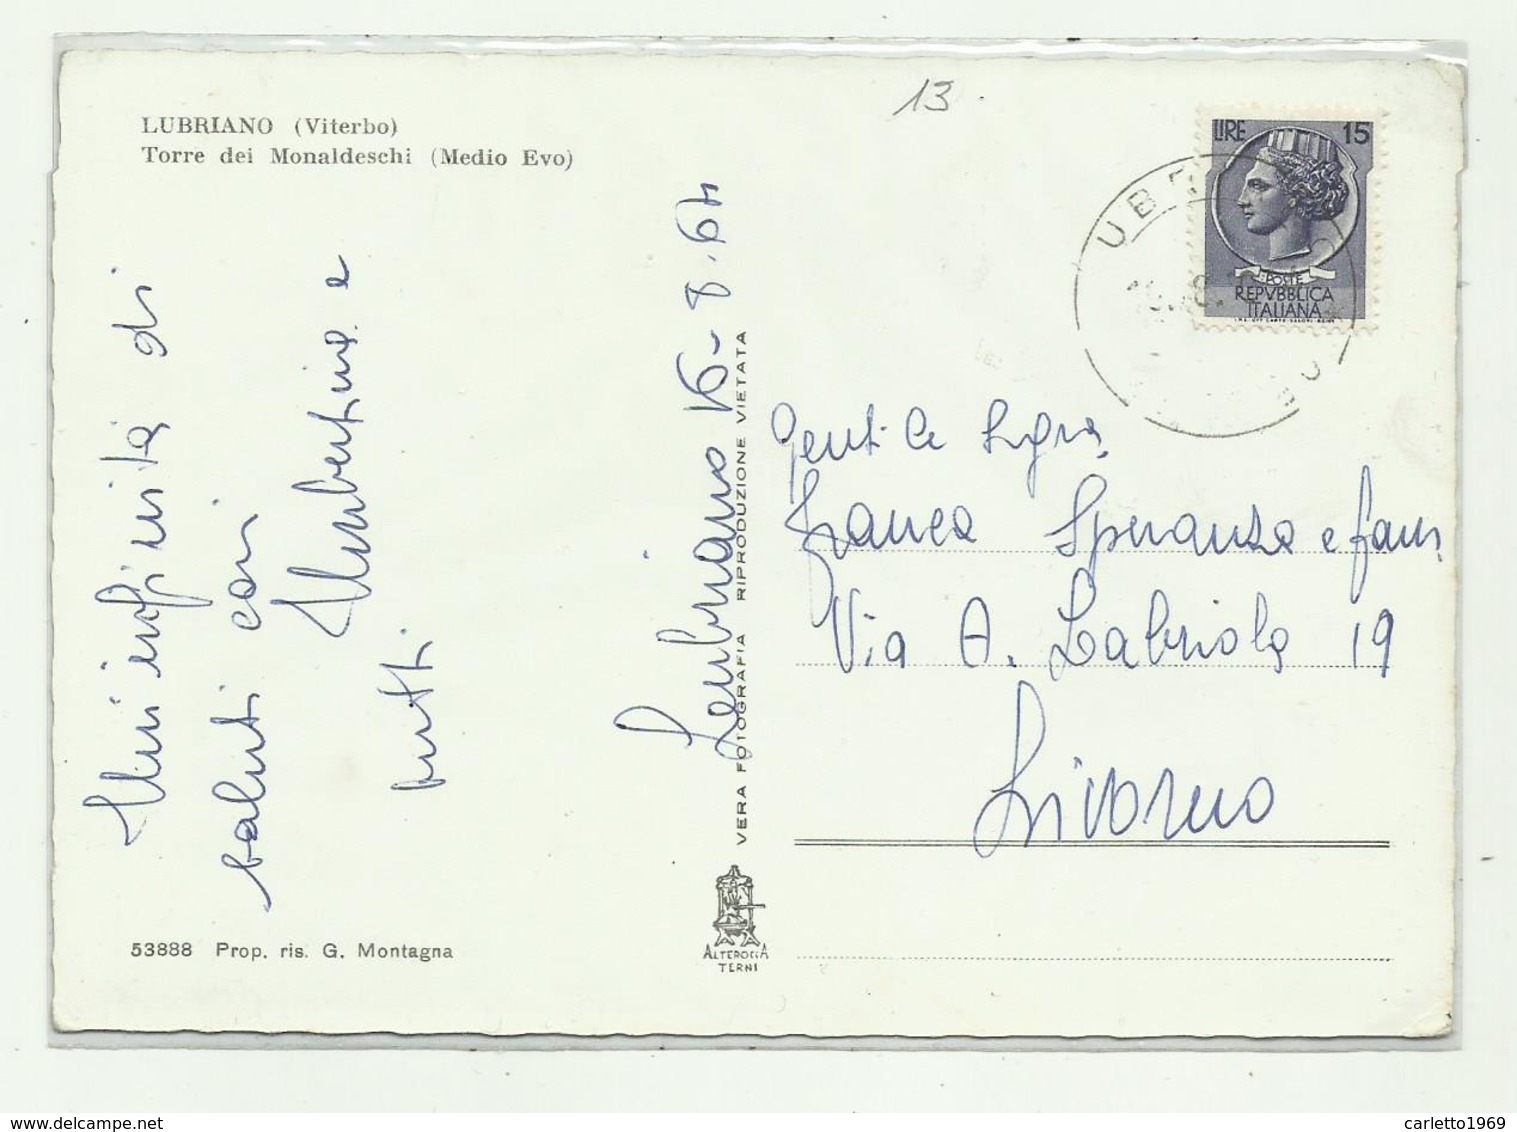 13
LUBRIANO (Viterbo)
Torre dei Monaldeschi (Medio Evo)
LIRE 15
POSTE
REPVBBLICA
ITALIANA
infinità di
saluti con
Umbertina e
tutti
Lubriano 16-8-64
VERA FOTOGRAFIA RIPRODUZIONE VIETATA
Gentile Sig.ra
Franca Speranza e fam
Via A. Labriola 19
Livorno
53888 Prop. ris. G. Montagna
ALTEROCCA
TERNI
delcampe.net
carletto1969